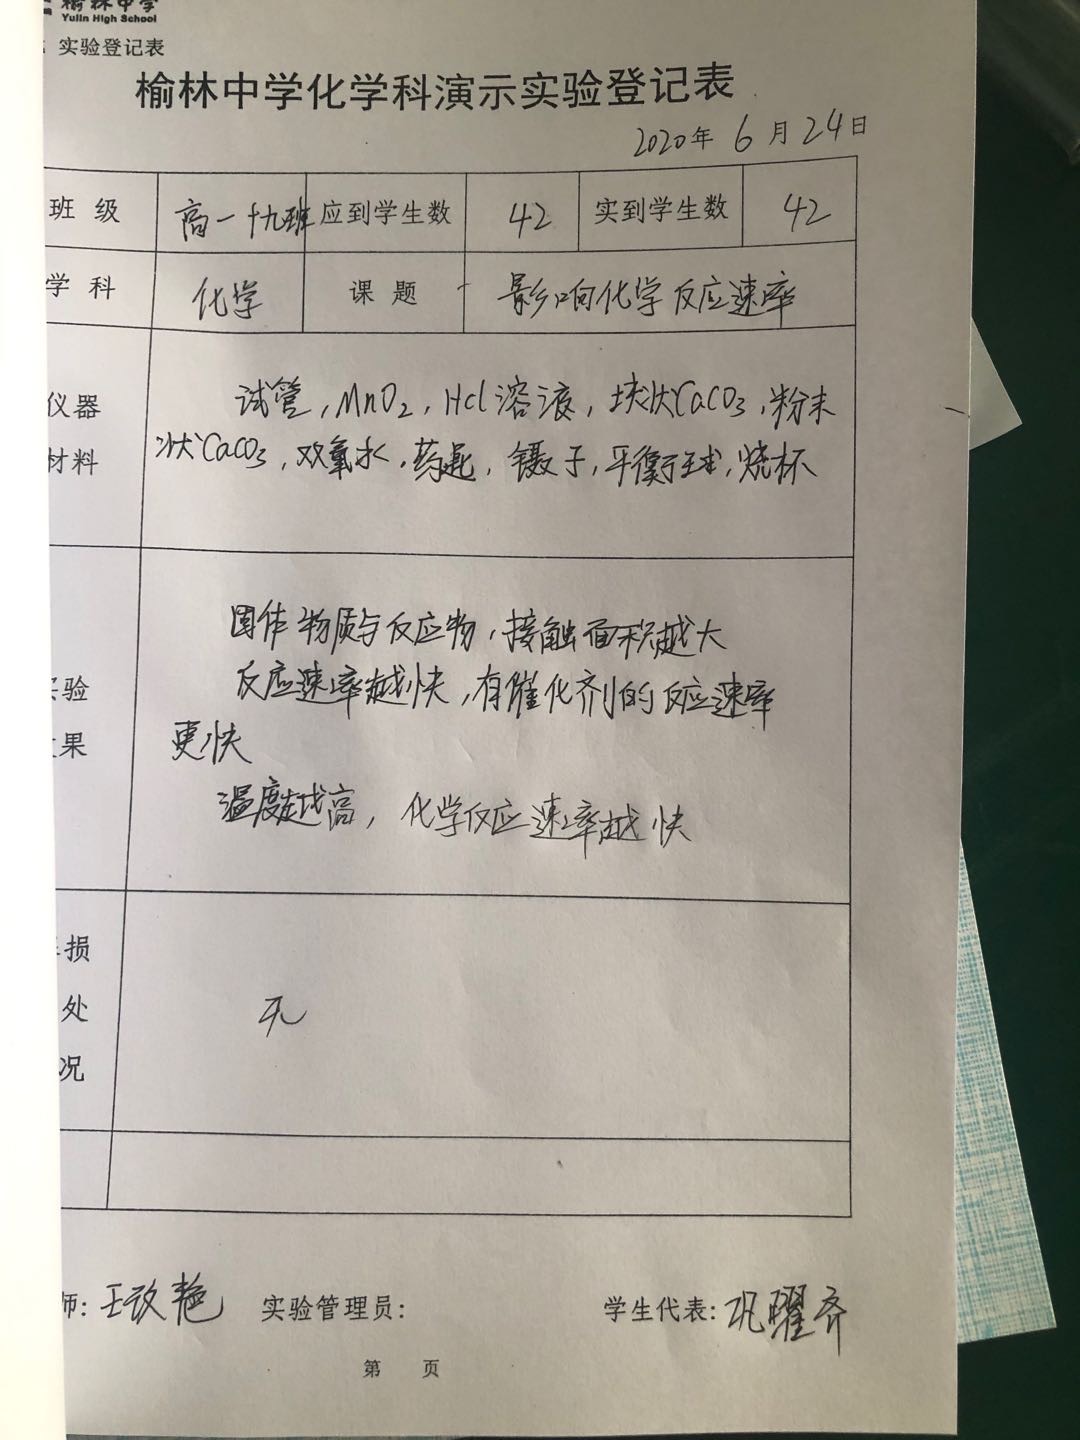 榆林中学
Yulin High School
实验登记表
榆林中学化学科演示实验登记表
2020年 6 月 24 日
班 级 高一十九班 应到学生数 42 实到学生数 42
学 科 化学 课 题 影响化学反应速率
仪器
材料
试管，MnO2，HCl溶液，块状CaCO3，粉末
状CaCO3，双氧水，药匙，镊子，平衡球，烧杯
验
果
固体物质与反应物，接触面积越大
反应速率越快，有催化剂的反应速率
更快
温度越高，化学反应速率越快
损
处
况
无
师: 王玫艳 实验管理员: 学生代表: 巩曜齐
第 页